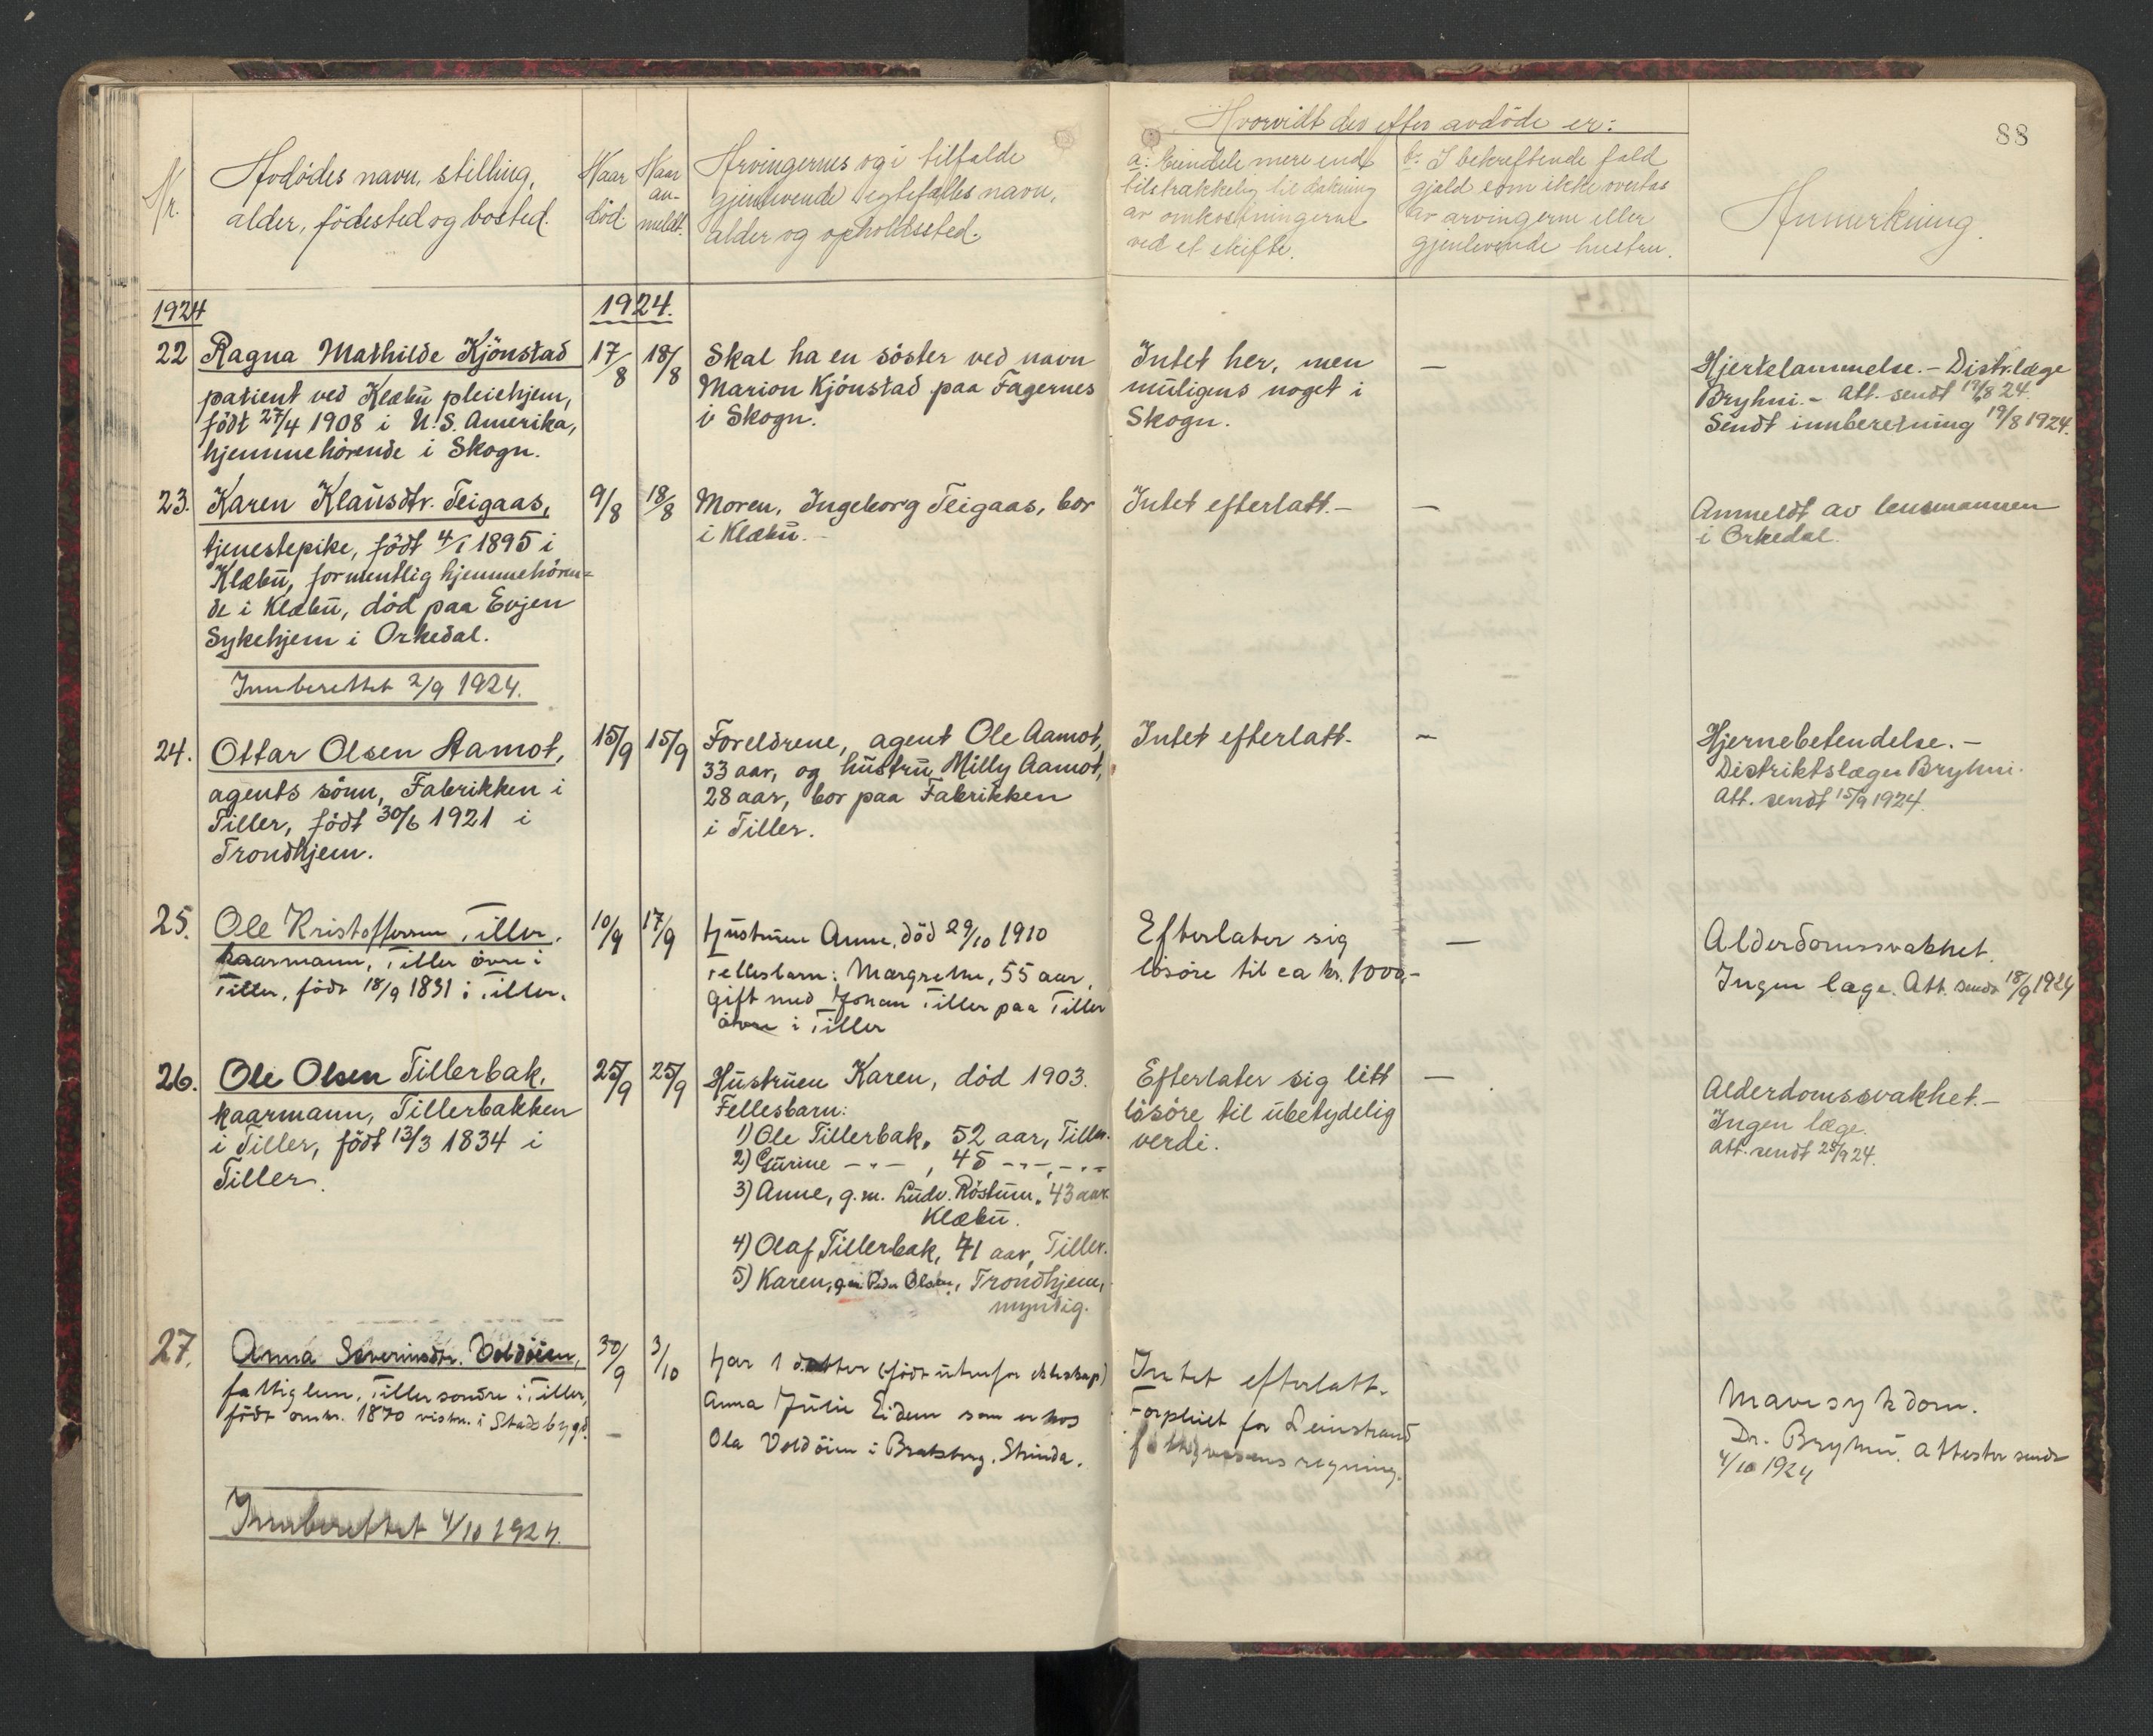 88
Nr.
Avdødes navn, stilling,
alder, fødested og bosted.
Naar
død.
Naar
an-
meldt.
Arvingernes og i tilfælde
gjenlevende egtefælles navn,
alder og opholdssted.
Hvorvidt der efter avdøde er:
a: Eiendele mere end
tilstrækkelig til dækning
av omkostningerne
ved et skifte.
b: I bekreftende fald
gjæld som ikke overtas
av arvingerne eller
gjenlevende hustru.
Anmerkning.
1924
1924.
22 Ragna Mathilde Kjönstad
patient ved Klæbu pleiehjem,
født 27/4 1908 i U.S. Amerika,
hjemmehörende i Skogn.
17/8
18/8
Skal ha en söster ved navn
Marion Kjönstad paa Fagernes
i Skogn.
Intet her, men
muligens noget i
Skogn.
—
Hjertelammelse. - Distr.læge
Bryhni. - Att. sendt 19/8 24.
Sendt innberetning 19/8 1924.
23. Karen Klausdtr. Teigaas,
tjenestepike, født 4/1 1895 i
Klæbu, formentlig hjemmehören=
de i Klæbu, död paa Evjen
Sykehjem i Orkedal.
9/8
18/8
Moren, Ingeborg Teigaas, bor
i Klæbu. -
Intet efterlatt. -
—
Anmeldt av lensmannen
i Orkedal.
Innberettet 2/9 1924.
24. Ottar Olsen Aamot,
agents sönn, Fabrikken i
Tiller, födt 30/6 1921 i
Trondhjem.
15/9
15/9
Foreldrene, agent Ole Aamot,
33 aar, og hustru Milly Aamot,
28 aar, bor paa Fabrikken
i Tiller.
Intet efterlatt -
~
Hjernebetendelse. -
Distriktslæge Bryhni.
Att. sendt 15/9 1924.
25. Ole Kristoffersen Tiller.
kaarmann, Tiller övre i
Tiller, födt 18/9 1831 i Tiller.
10/9
17/9
Hustruen Anne, död 29/10 1910
Fellesbarn: Margrethe, 55 aar,
gift med Johan Tiller paa Tiller
övre i Tiller
Efterlater sig
lösöre til ca kr. 1000,-
—
Alderdomssvakhet.
Ingen læge. Att. sendt 18/9 1924
26. Ole Olsen Tillerbak.
kaarmann, Tillerbakken
i Tiller, födt 13/3 1834 i
Tiller.
25/9
25/9
Hustruen Karen, död 1903.
Fellesbarn:
1) Ole Tillerbak, 52 aar, Tiller.
2) Gurine -"-, 45 -"-, -"-
3) Anne, g.m. Ludv. Röstum, 43 aar.
Klæbu.
4) Olaf Tillerbak, 41 aar, Tiller.
5) Karen, g.m. Peder Olsen, Trondhjem,
myndig.
Efterlater sig litt
lösöre til ubetydelig
verdi.
—
Alderdomssvakhet. -
Ingen læge.
Att. sendt 25/9 24.
27. Anna Severinsdtr. Voldöien,
fattiglem, Tiller söndre i Tiller,
födt omkr. 1870 vistn. i Stadsbygd.
30/9
3/10
—
Har 1 datter (födt utenfor ekteskap)
Anna Julie Eidem som er hos
Ola Voldöien i Bratsberg, Strinda.
Intet efterlatt.
Forpleiet for Leinstrand
fattigvesens regning.
Mavesykdom.
Dr. Bryhni. Attester sendt
4/10 1924
Innberettet 4/10 1924.